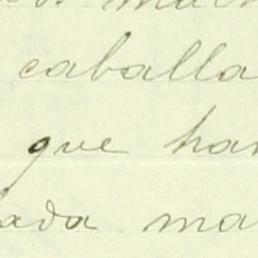 caballa
que han
ada ma